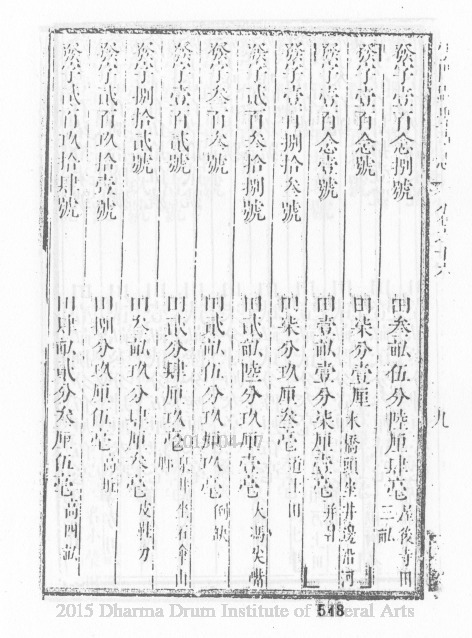 發字壹百念捌號 田叁畝伍分陸厘肆毫 屋後寺田三畝
發字壹百念號 田柒分壹厘 木橋頭坐井邊沿河
發字壹百念壹號 田壹畝壹分柒厘壹毫
發字壹百捌拾叁號 田柒分玖厘叁毫 道士田
發字貳百叁拾捌號 田貳畝陸分玖厘壹毫 大馮尖嘴
發字叁百叁號 田貳畝伍分玖厘玖毫
發字壹百貳號 田貳分肆厘玖毫
發字捌拾貳號 田叁畝玖分肆厘叁毫 皮鞋刀
發字貳百玖拾壹號 田捌分玖厘伍毫 高坵
發字貳百玖拾肆號 田肆畝貳分叁厘伍毫 高四畝
九
548
2015 Dharma Drum Institute of Liberal Arts